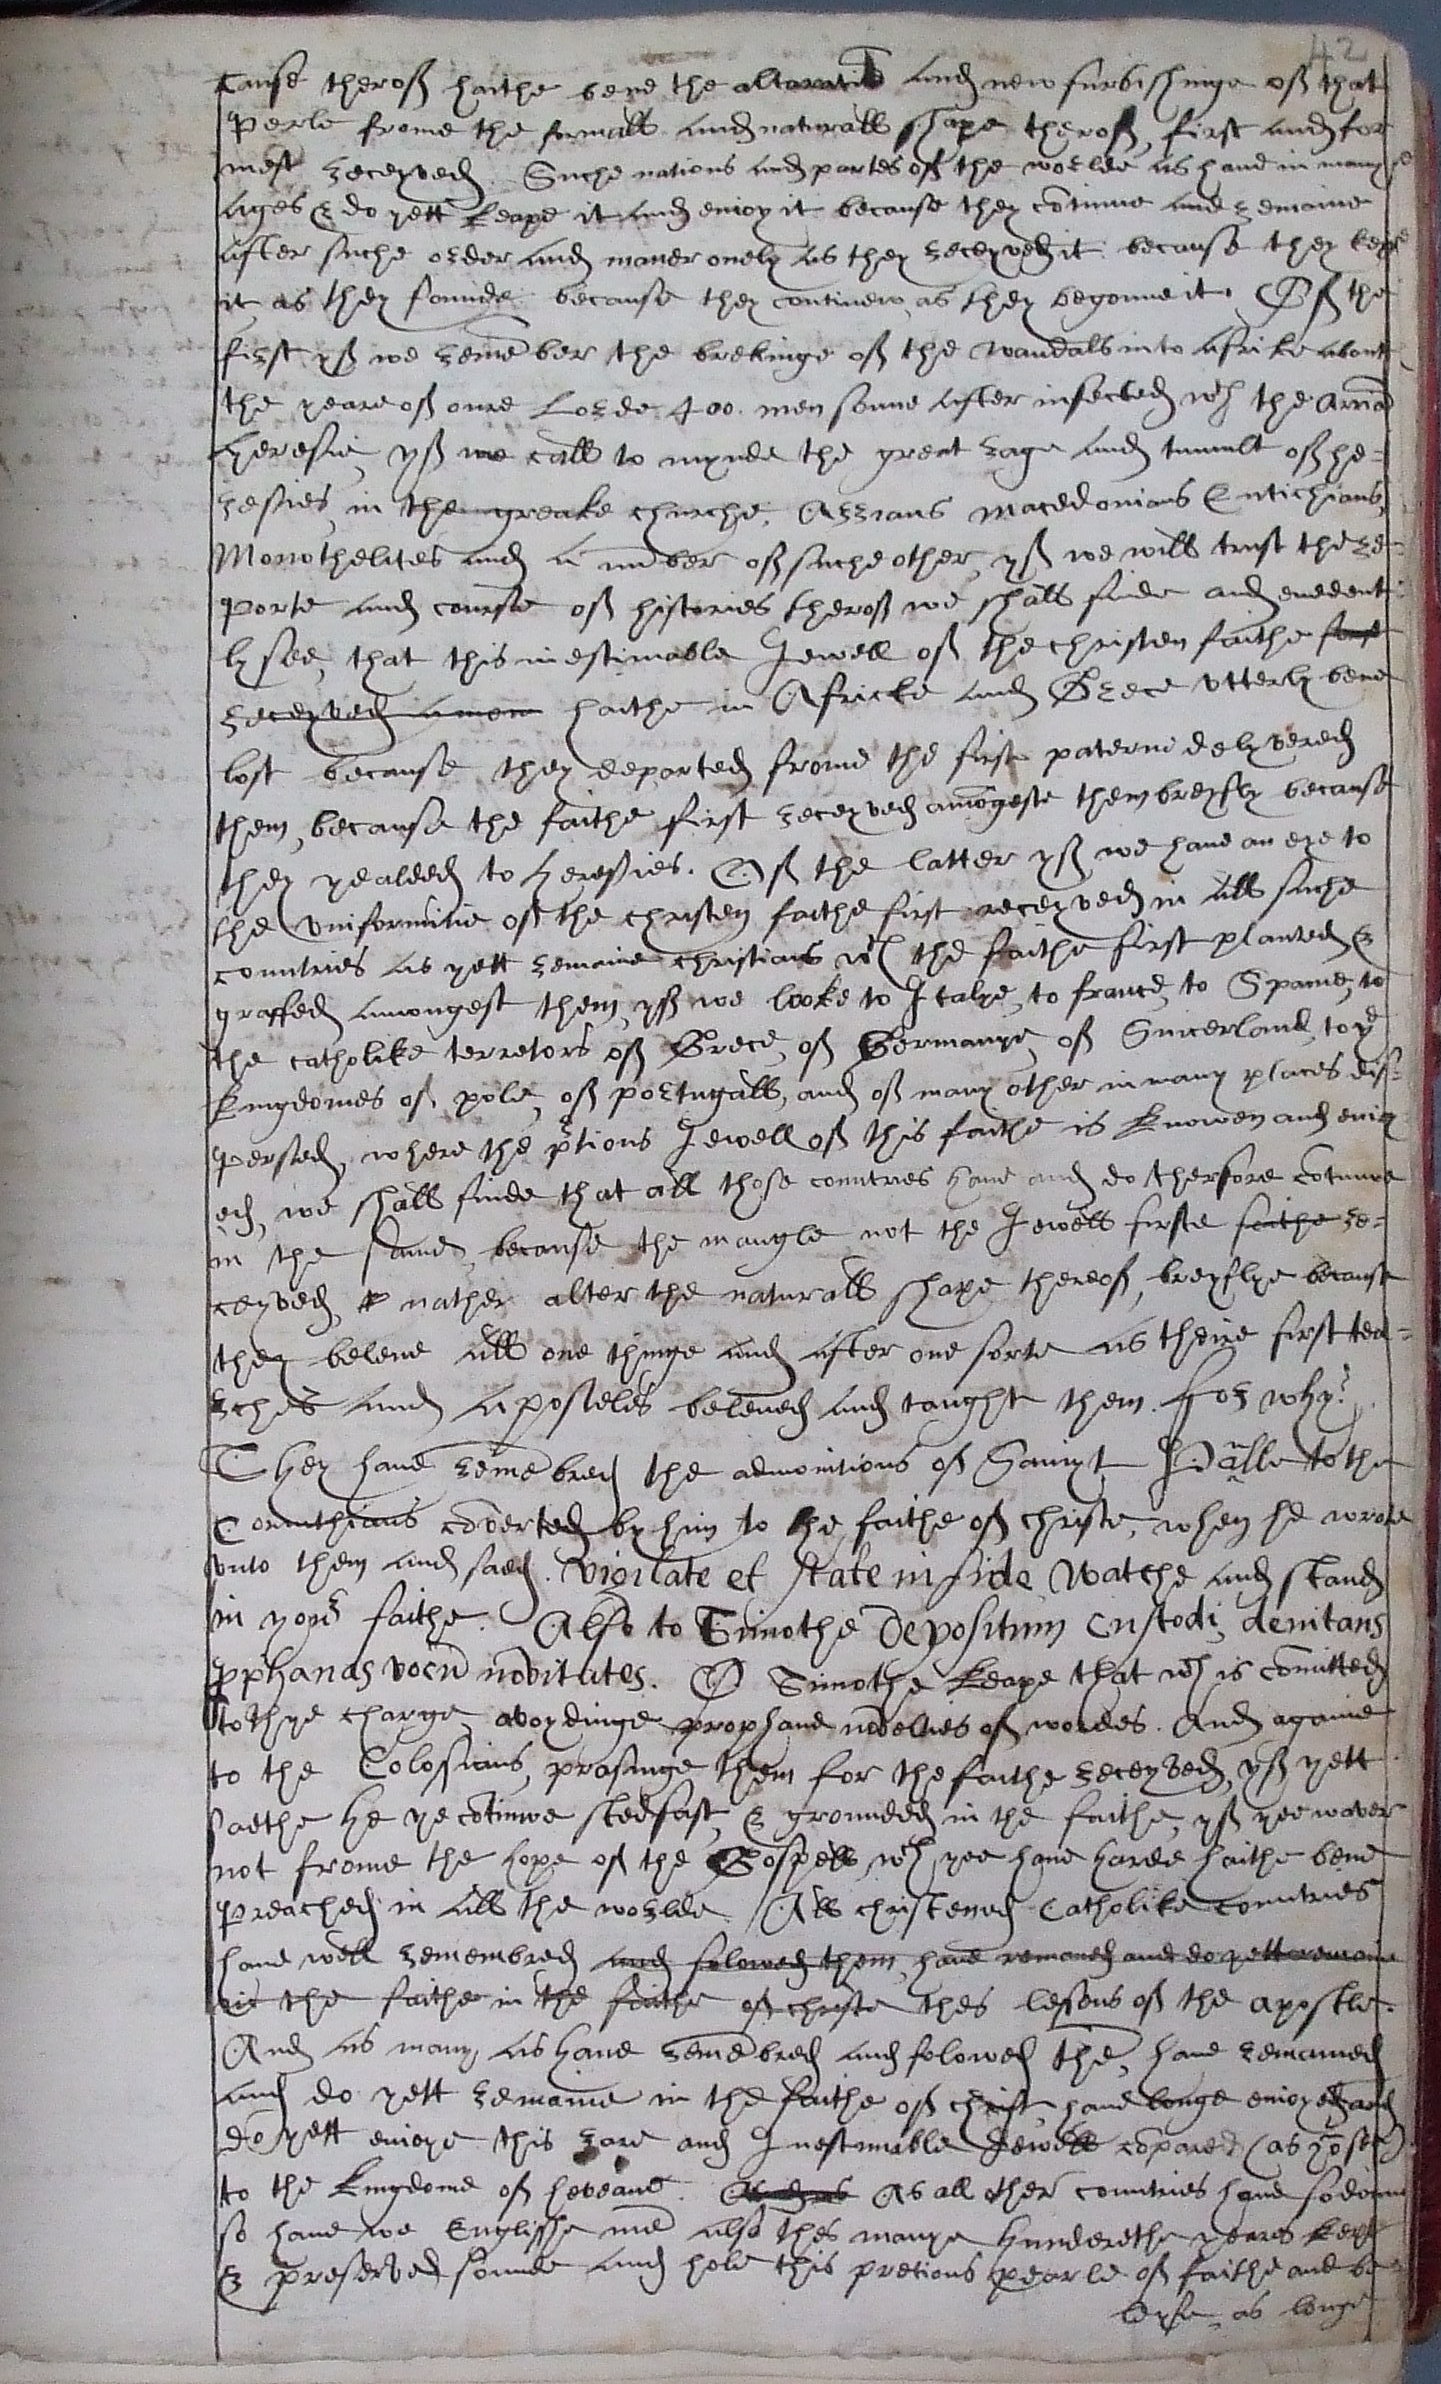 42
Cause therof haithe bene the alteratiō and new furbishinge of that
Perle frome the formall and naturall shape therof, first and for
mest receyved. Suche nations and partes of the worlde as have in many
ages & do yett keape it and enioy it because they cōtinue and remaine
after suche order and maner onely as they receyved it because they kept
it as they founde because they continew as they begonne it. Of the
first yf we remēber the brekinge of the wandals into Afrike about
the yeare of oure Lorde 400. men sonne after infected wth the Arriā
heresie, yf we call to mynde the great rage and tumult of he-
resies in the greake churche, Arrians Macedonians Eutichians,
Monothelites and a nūber of suche other, yf we will trust the re-
porte and course of histories therof we shall finde and evedent-
ly see, that this inestimable Jewell of the christen faithe first
receyved amon haithe in Africke and Grece utterly bene
lost because they departed frome the first paterne delyvered
them, because the faithe first receyved amōgeste them breyfly because
they yealded to heresies. Of the latter yf we have an eye to
the uniformitie of the christen faithe first receyved in all suche
countries as yett remaine christians wth the faithe first planted &
graffed amongest them, yf we looke to Italye, to france, to Spaine, to
the catholike terretors of Grece, of Germanye, of Suicerland, to ye
Kingdomes of pole, of portugall, and of many other in many places dis-
persed, where the p̄tious Jewell of this faithe is knowen and enioy
ed, we shall finde that all those countries have and do therfore cōtinwe
in the same, because the mangle not the Jewell firste faithe re-
ceyved, nather alter the naturall shape thereof, breyflye because
they beleve all one thinge and after one sorte as theire first tea-
rches and apostles beleved and taught them. For why?
They have remēbred the admonitions of Sainyt Paulle to the
Corinthians cōverted by him to the faithe of christe, when he wrote
unto them and saed. Vigilate et state in fide Watche and stand
in your faithe. Also to Timothe Depositum custodi, devitans
pphanas vocū novitates. O Timothe keape that wch is comitted
to thye charge avoydinge prophane novelties of wordes. And againe
to the Colosians, prasinge them for the faithe receyved, yf yett
saethe he ye cōtinwe stedfast, & grounded in the faithe, yf yee waver
not frome the hope of the Gospell, wch yee have harde haithe bene
preached in all the worlde. All christened Catholike countries
have well remembred and folowed them, have remaned and do yett remaine
in the faithe in the faithe of christe thes lessons of the apostle.
And as many as have remēbred and folowed thē, have remained
and do yett remaine in the faithe of christ, have longe enioyed and
do yett enioye this rare and Inestimable Jewell cōpared (as
to the kingdome of heveane. As all other countries have so donne
so have we Englisshe mē also thes manye hunderethe yeares kept
& preserved sounde and hole this pretious pearle of faithe and be
leyfe, as longe